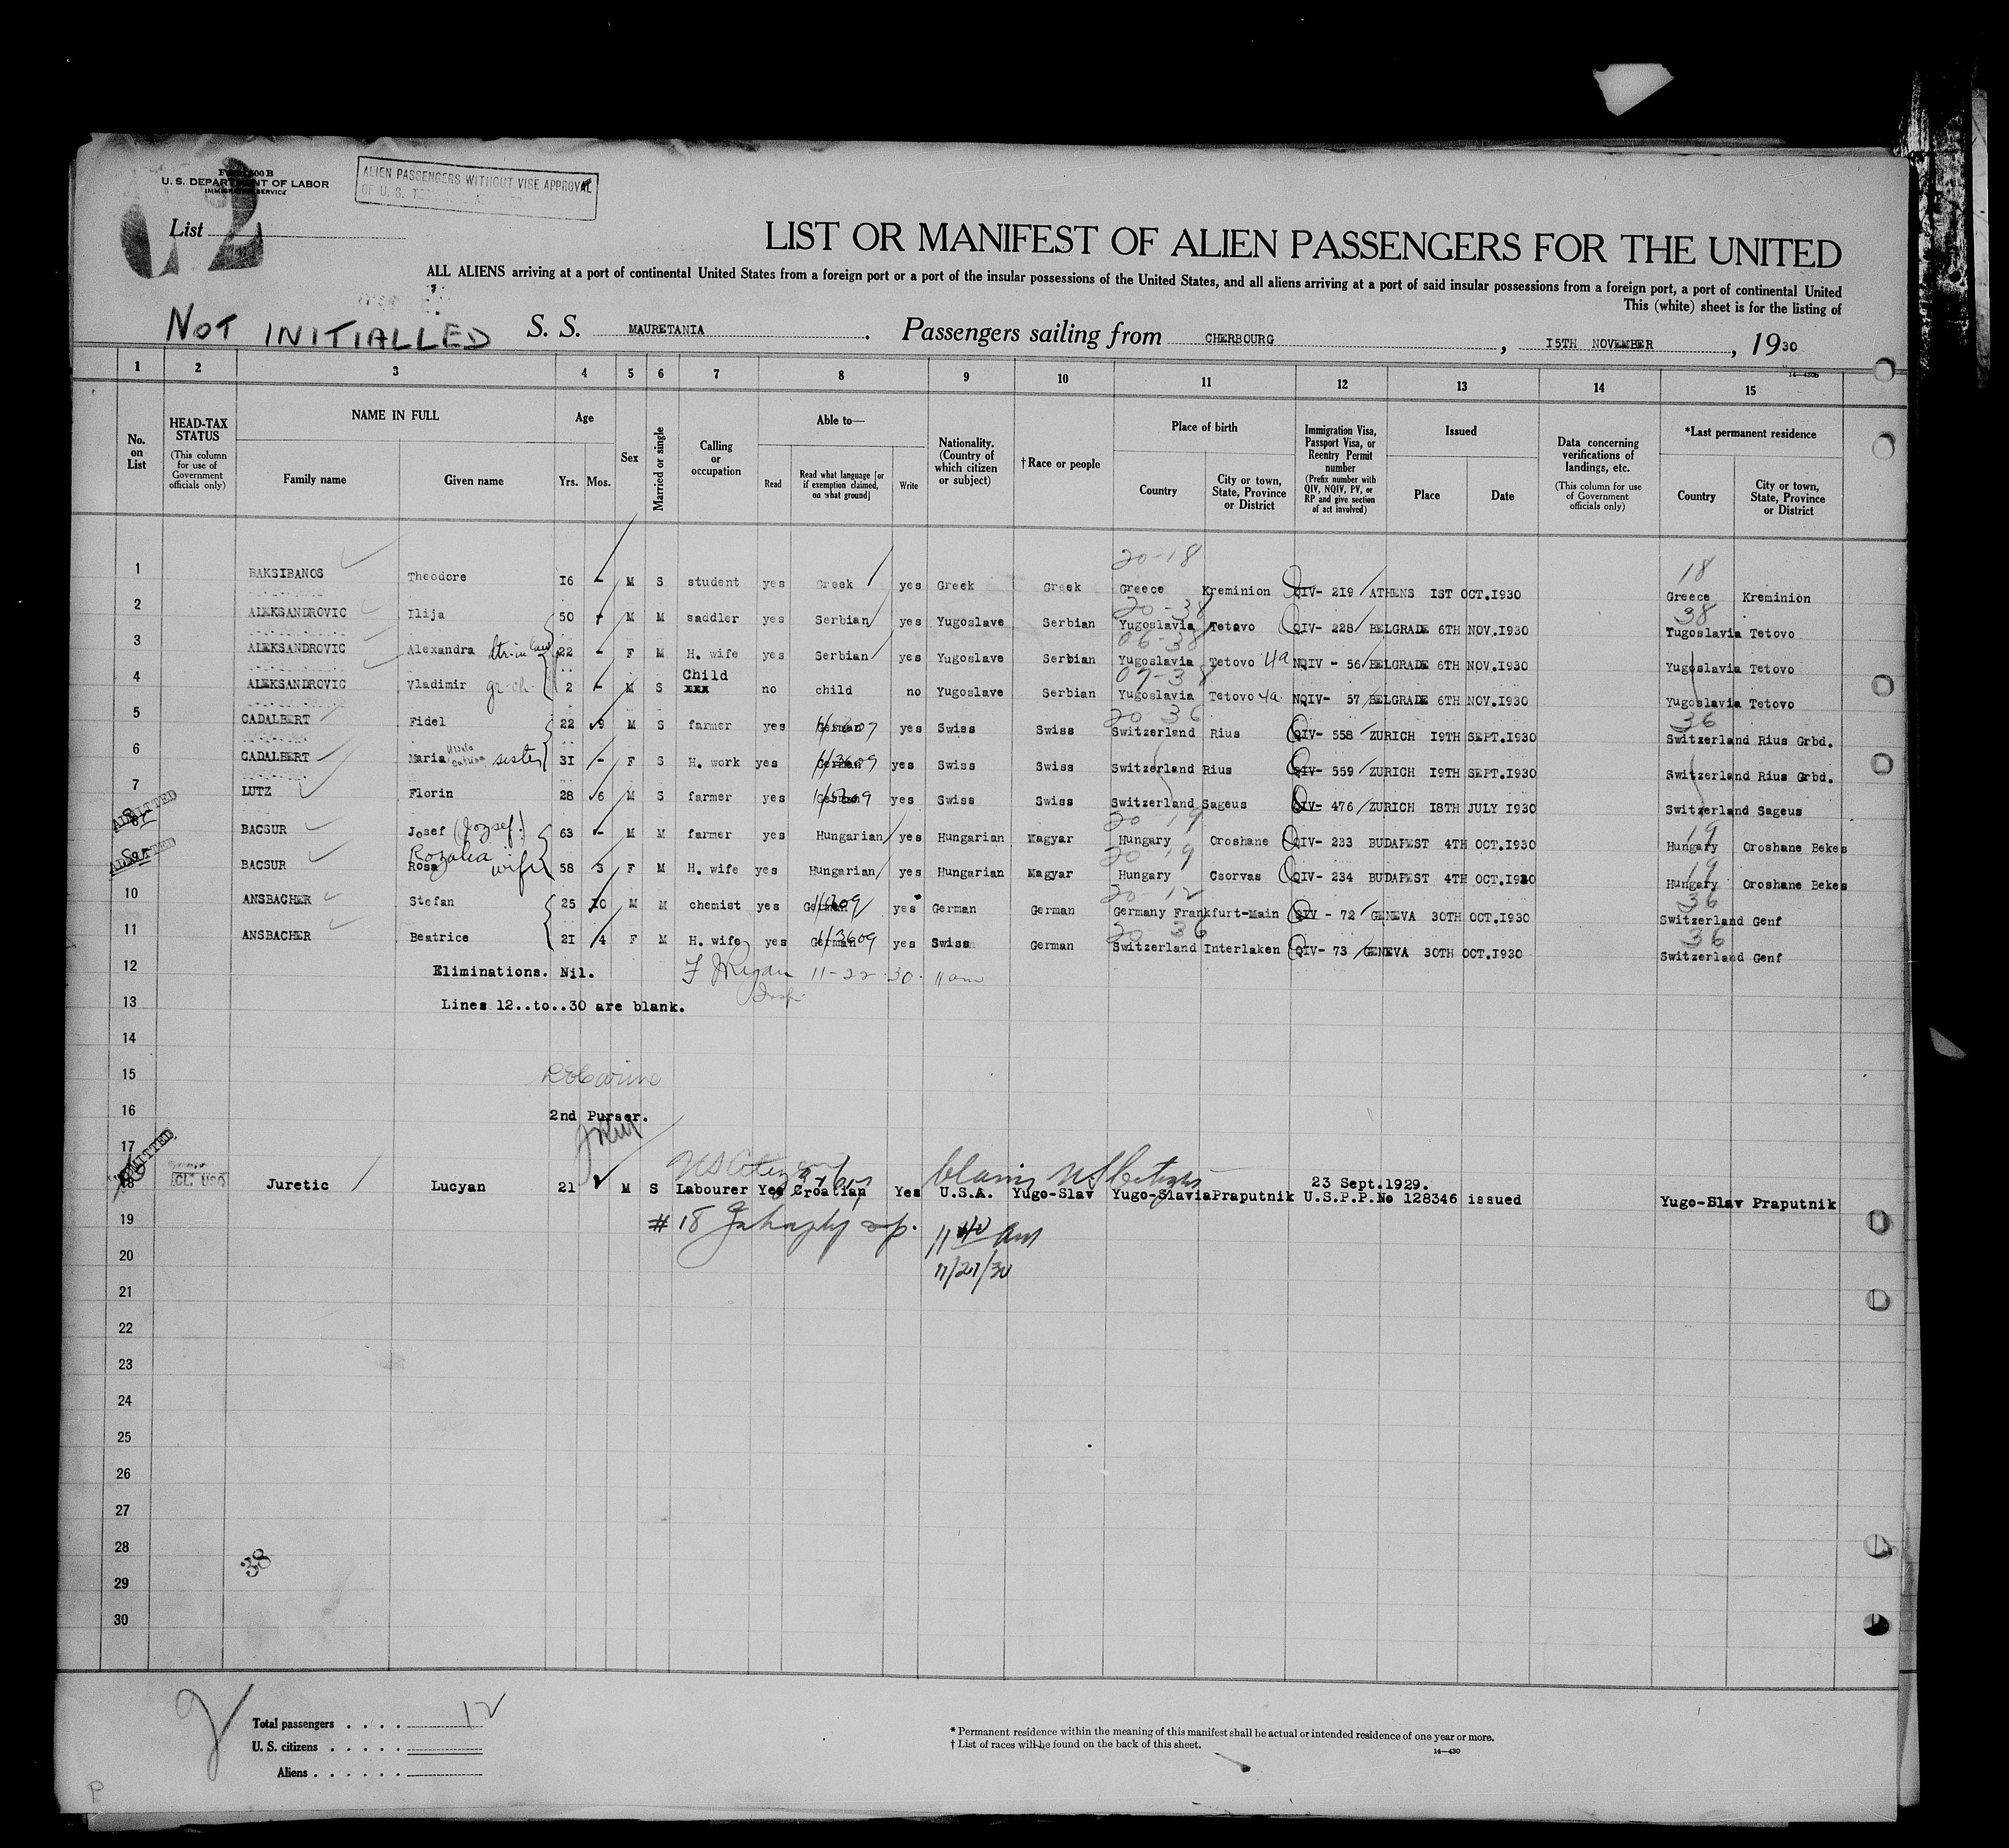 Form 500 B
U. S. DEPARTMENT OF LABOR
IMMIGRATION SERVICE
ALIEN PASSENGERS WITHOUT VISE APPROVAL
OF U. S.
List 2
LIST OR MANIFEST OF ALIEN PASSENGERS FOR THE UNITED
ALL ALIENS arriving at a port of continental United States from a foreign port or a port of the insular possessions of the United States, and all aliens arriving at a port of said insular possessions from a foreign port, a port of continental United
This (white) sheet is for the listing of
NOT INITIALLED S. S. MAURETANIA. Passengers sailing from CHERBOURG, I5TH NOVEMBER, 1930
14—430b
1 2 3 4 5 6 7 8 9 10 11 12 13 14 15
No. on List
HEAD-TAX STATUS (This column for use of Government officials only)
NAME IN FULL
Family name Given name
Age
Yrs. Mos.
Sex
Married or single
Calling or occupation
Able to—
Read Read what language [or if exemption claimed, on what ground] Write
Nationality. (Country of which citizen or subject)
†Race or people
Place of birth
Country City or town, State, Province or District
Immigration Visa, Passport Visa, or Reentry Permit number (Prefix number with QIV, NQIV, PV, or RP and give section of act involved)
Issued
Place Date
Data concerning verifications of landings, etc. (This column for use of Government officials only)
*Last permanent residence
Country City or town, State, Province or District
20-18 18
1 BAKSIBANOS Theodore I6 - M S student yes Greek yes Greek Greek Greece Kreminion QIV- 2I9 ATHENS IST OCT.I930 Greece Kreminion
20-38 38
2 ALEKSANDROVIC Ilija 50 - M M saddler yes Serbian yes Yugoslave Serbian Yugoslavia Tetovo QIV- 228 BELGRADE 6TH NOV.I930 Yugoslavia Tetovo
06-38
3 ALEKSANDROVIC Alexandra dtr-in law 22 - F M H. wife yes Serbian yes Yugoslave Serbian Yugoslavia Tetovo 4a NQIV - 56 BELGRADE 6TH NOV.I930 Yugoslavia Tetovo
Child 07-38
4 ALEKSANDROVIC Vladimir gr-ch. 2 - M S xxx no child no Yugoslave Serbian Yugoslavia Tetovo 4a. NQIV- 57 BELGRADE 6TH NOV.I930 Yugoslavia Tetovo
20 36 36
5 CADALBERT Fidel 22 9 M S farmer yes German yes Swiss Swiss Switzerland Rius QIV- 558 ZURICH I9TH SEPT.I930 Switzerland Rius Grbd.
6 CADALBERT Maria sister 3I - F S H. work yes German yes Swiss Swiss Switzerland Rius QIV- 559 ZURICH I9TH SEPT.I930 Switzerland Rius Grbd.
7 LUTZ Florin 28 6 M S farmer yes German yes Swiss Swiss Switzerland Sageus QIV- 476 ZURICH I8TH JULY I930 Switzerland Sageus
ADMITTED 20 19 19
8 BACSUR Josef (Jozsef) 63 - M M farmer yes Hungarian yes Hungarian Magyar Hungary Oroshane QIV- 233 BUDAPEST 4TH OCT.I930 Hungary Oroshane Bekes
ADMITTED Rozalia 20 19 19
9 BACSUR Rosa wife 58 3 F M H. wife yes Hungarian yes Hungarian Magyar Hungary Csorvas QIV- 234 BUDAPEST 4TH OCT.I930 Hungary Oroshane Bekes
20-12 36
10 ANSBACHER Stefan 25 I0 M M chemist yes German yes German German Germany Frankfurt-Main QIV - 72 GENEVA 30TH OCT.I930 Switzerland Genf
20 36 36
11 ANSBACHER Beatrice 2I 4 F M H. wife yes German yes Swiss German Switzerland Interlaken QIV- 73 GENEVA 30TH OCT.I930 Switzerland Genf
12 Eliminations. Nil. 11-22-30. 11 am
13 Lines 12..to..30 are blank.
14
15
16 2nd Purser.
17
ADMITTED US Citizen Claims US Citizen 23 Sept.1929.
18 CL. USC Juretic Lucyan 21 M S Labourer Yes Croatian Yes U.S.A. Yugo-Slav Yugo-Slavia Praputnik U.S.P.P.No 128346 issued Yugo-Slav Praputnik
19 # 18 11 40 am
20 11/21/30
21
22
23
24
25
26
27
28 38
29
30
Total passengers . . . . 12
U. S. citizens . . . . .
Aliens . . . . . .
* Permanent residence within the meaning of this manifest shall be actual or intended residence of one year or more.
† List of races will be found on the back of this sheet.
14—430
P